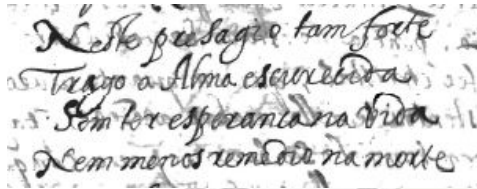 Neste presagio tam forte
Trago a Alma escurecida
Sem ter esperanca na vida
Nem menos remedio na morte